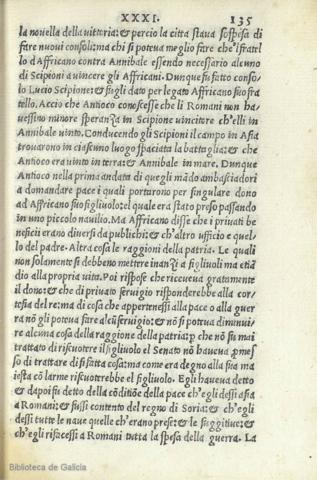 XXXI. 135
la nouella della vittoria: & percio la citta staua sospesa di
fare nuoui consoli: ma chi si poteua meglio fare che'l fratel
lo d'Affricano contra Annibale essendo necessario alcuno
di Scipioni a vincere gli Affricani. Dunque fu fatto conso
lo Lucio Scipione: & fugli dato per legato Affricano suo fra
tello. Accio che Antioco conoscesse che li Romani non ha
uessino minore speranza in Scipione vincitore ch'elli in
Annibale vinto. Conducendo gli Scipioni il campo in Asia
trouarono in ciascuno luogo spaciata la battaglia: & che
Antioco era vinto in terra: & Annibale in mare. Dunque
Antioco nella prima andata di quegli mādo ambasciadori
a domandare pace i quali portarono per singulare dono
ad Affricano suo figliuolo: el quale era stato preso passando
in uno piccolo nauilio. Ma Affricano disse che i priuati be
neficii erano diuersi da publichi: & ch'altro ufficio e quel
lo del padre. Altra cosa le raggioni della patria. Le quali
non solamente si debbono mettere inanzi a figliuoli ma etiā
dio alla propria vita. Poi rispose che riceueua gratamente
il dono: & che di priuato seruigio risponderebbe alla cor
tesia del re: ma di cosa che appertenessi alla pace o alla guer
ra nō gli poteua fare alcū seruigio: & nō si potua diminui
re alcuna cosa della raggione della patria: p̱ che nō fu mai
trattato di riscuotere il figliuolo el Senato nō haueua p̱mes
so di trattare di si fatta cosa: ma come era degno alla sua ma
iesta cō larme riscuotrebbe el figliuolo. Egli haueua detto
& dapoi fu detto della cōditiōe della pace ch'egli dessi asia
a Romani: & fussi contento del regno di Soria: & ch'egli
dessi tutte le naue quelle ch'erano prese: & le fuggitiue: &
ch'egli rifacessi a Romani tutta la spesa della guerra. La
Biblioteca de Galicia